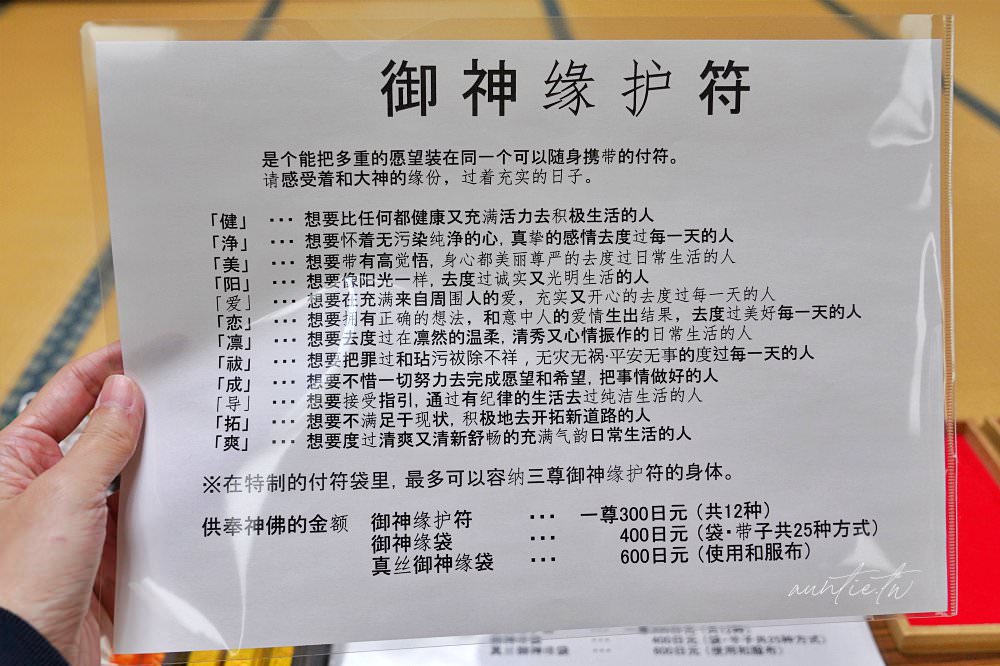 御神缘护符
是个能把多重的愿望装在同一个可以随身携带的付符。
请感受着和大神的缘份，过着充实的日子。
「健」 ･･･ 想要比任何都健康又充满活力去积极生活的人
「浄」 ･･･ 想要怀着无污染纯净的心, 真挚的感情去度过每一天的人
「美」 ･･･ 想要带有高觉悟, 身心都美丽尊严的去度过日常生活的人
「阳」 ･･･ 想要像阳光一样, 去度过诚实又光明生活的人
「爱」 ･･･ 想要在充满来自周围人的爱，充实又开心的去度过每一天的人
「恋」 ･･･ 想要拥有正确的想法，和意中人的爱情生出结果，去度过美好每一天的人
「凛」 ･･･ 想要去度过在凛然的温柔, 清秀又心情振作的日常生活的人
「祓」 ･･･ 想要把罪过和玷污祓除不祥，无灾无祸･平安无事的度过每一天的人
「成」 ･･･ 想要不惜一切努力去完成愿望和希望, 把事情做好的人
「导」 ･･･ 想要接受指引, 通过有纪律的生活去过纯洁生活的人
「拓」 ･･･ 想要不满足于现状, 积极地去开拓新道路的人
「爽」 ･･･ 想要度过清爽又清新舒畅的充满气韵日常生活的人
※在特制的付符袋里, 最多可以容纳三尊御神缘护符的身体。
供奉神佛的金额 御神缘护符 ･･･ 一尊300日元（共12种）
御神缘袋 ･･･ 400日元（袋･带子共25种方式）
真丝御神缘袋 ･･･ 600日元（使用和服布）
auntie.tw
400日元（袋･带子共25种方式）
600日元（使用和服布）